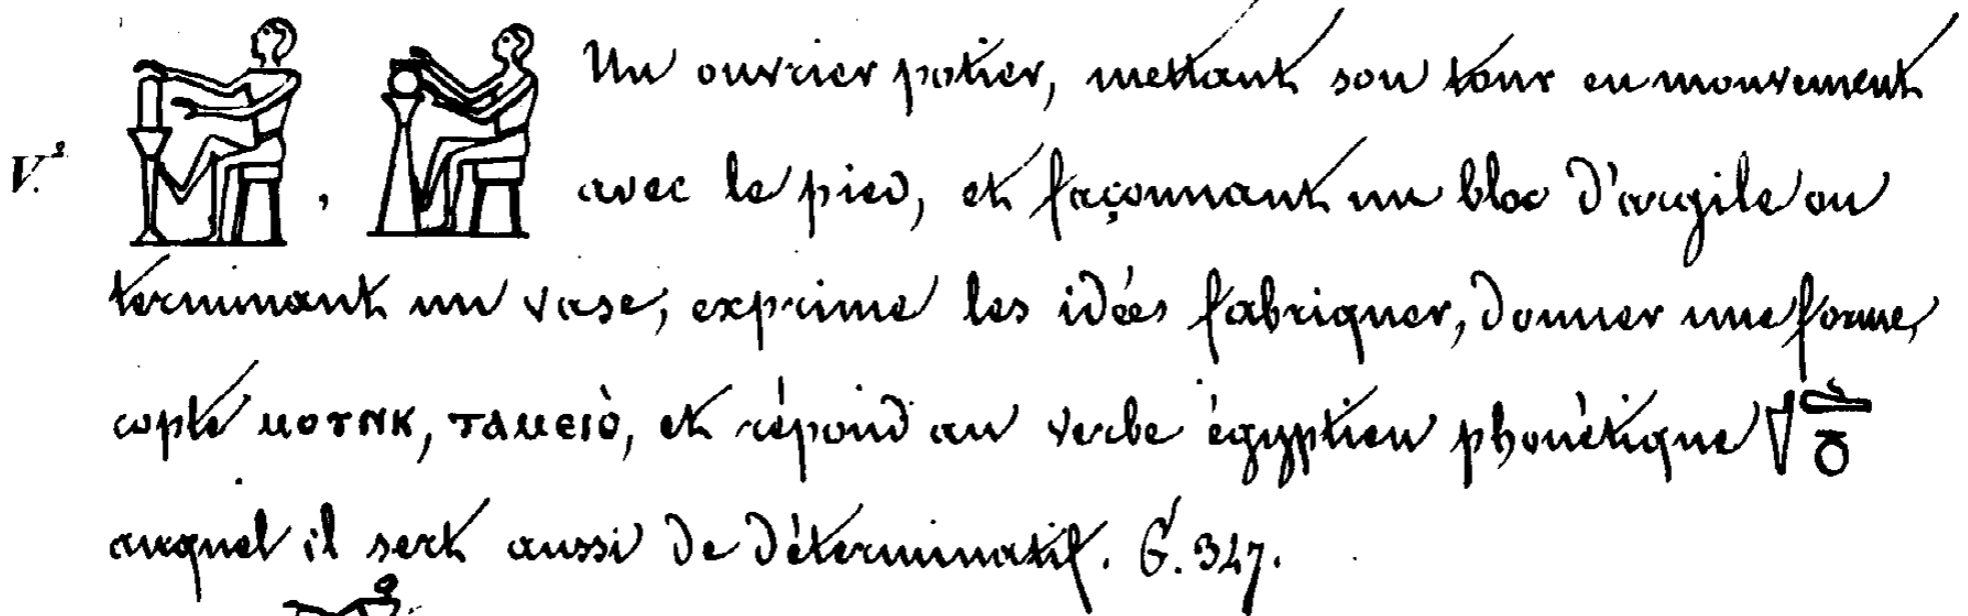 V.e , Un ouvrier potier, mettant son tour en mouvement
avec le pied, et façonnant un bloc d'argile ou
terminant un vase, exprime les idées fabriquer, donner une forme,
copte ⲙⲟⲩⲛⲕ, ⲧⲁⲙⲉⲓⲟ̀, et répond au verbe égyptien phonétique
auquel il sert aussi de déterminatif. G. 347.